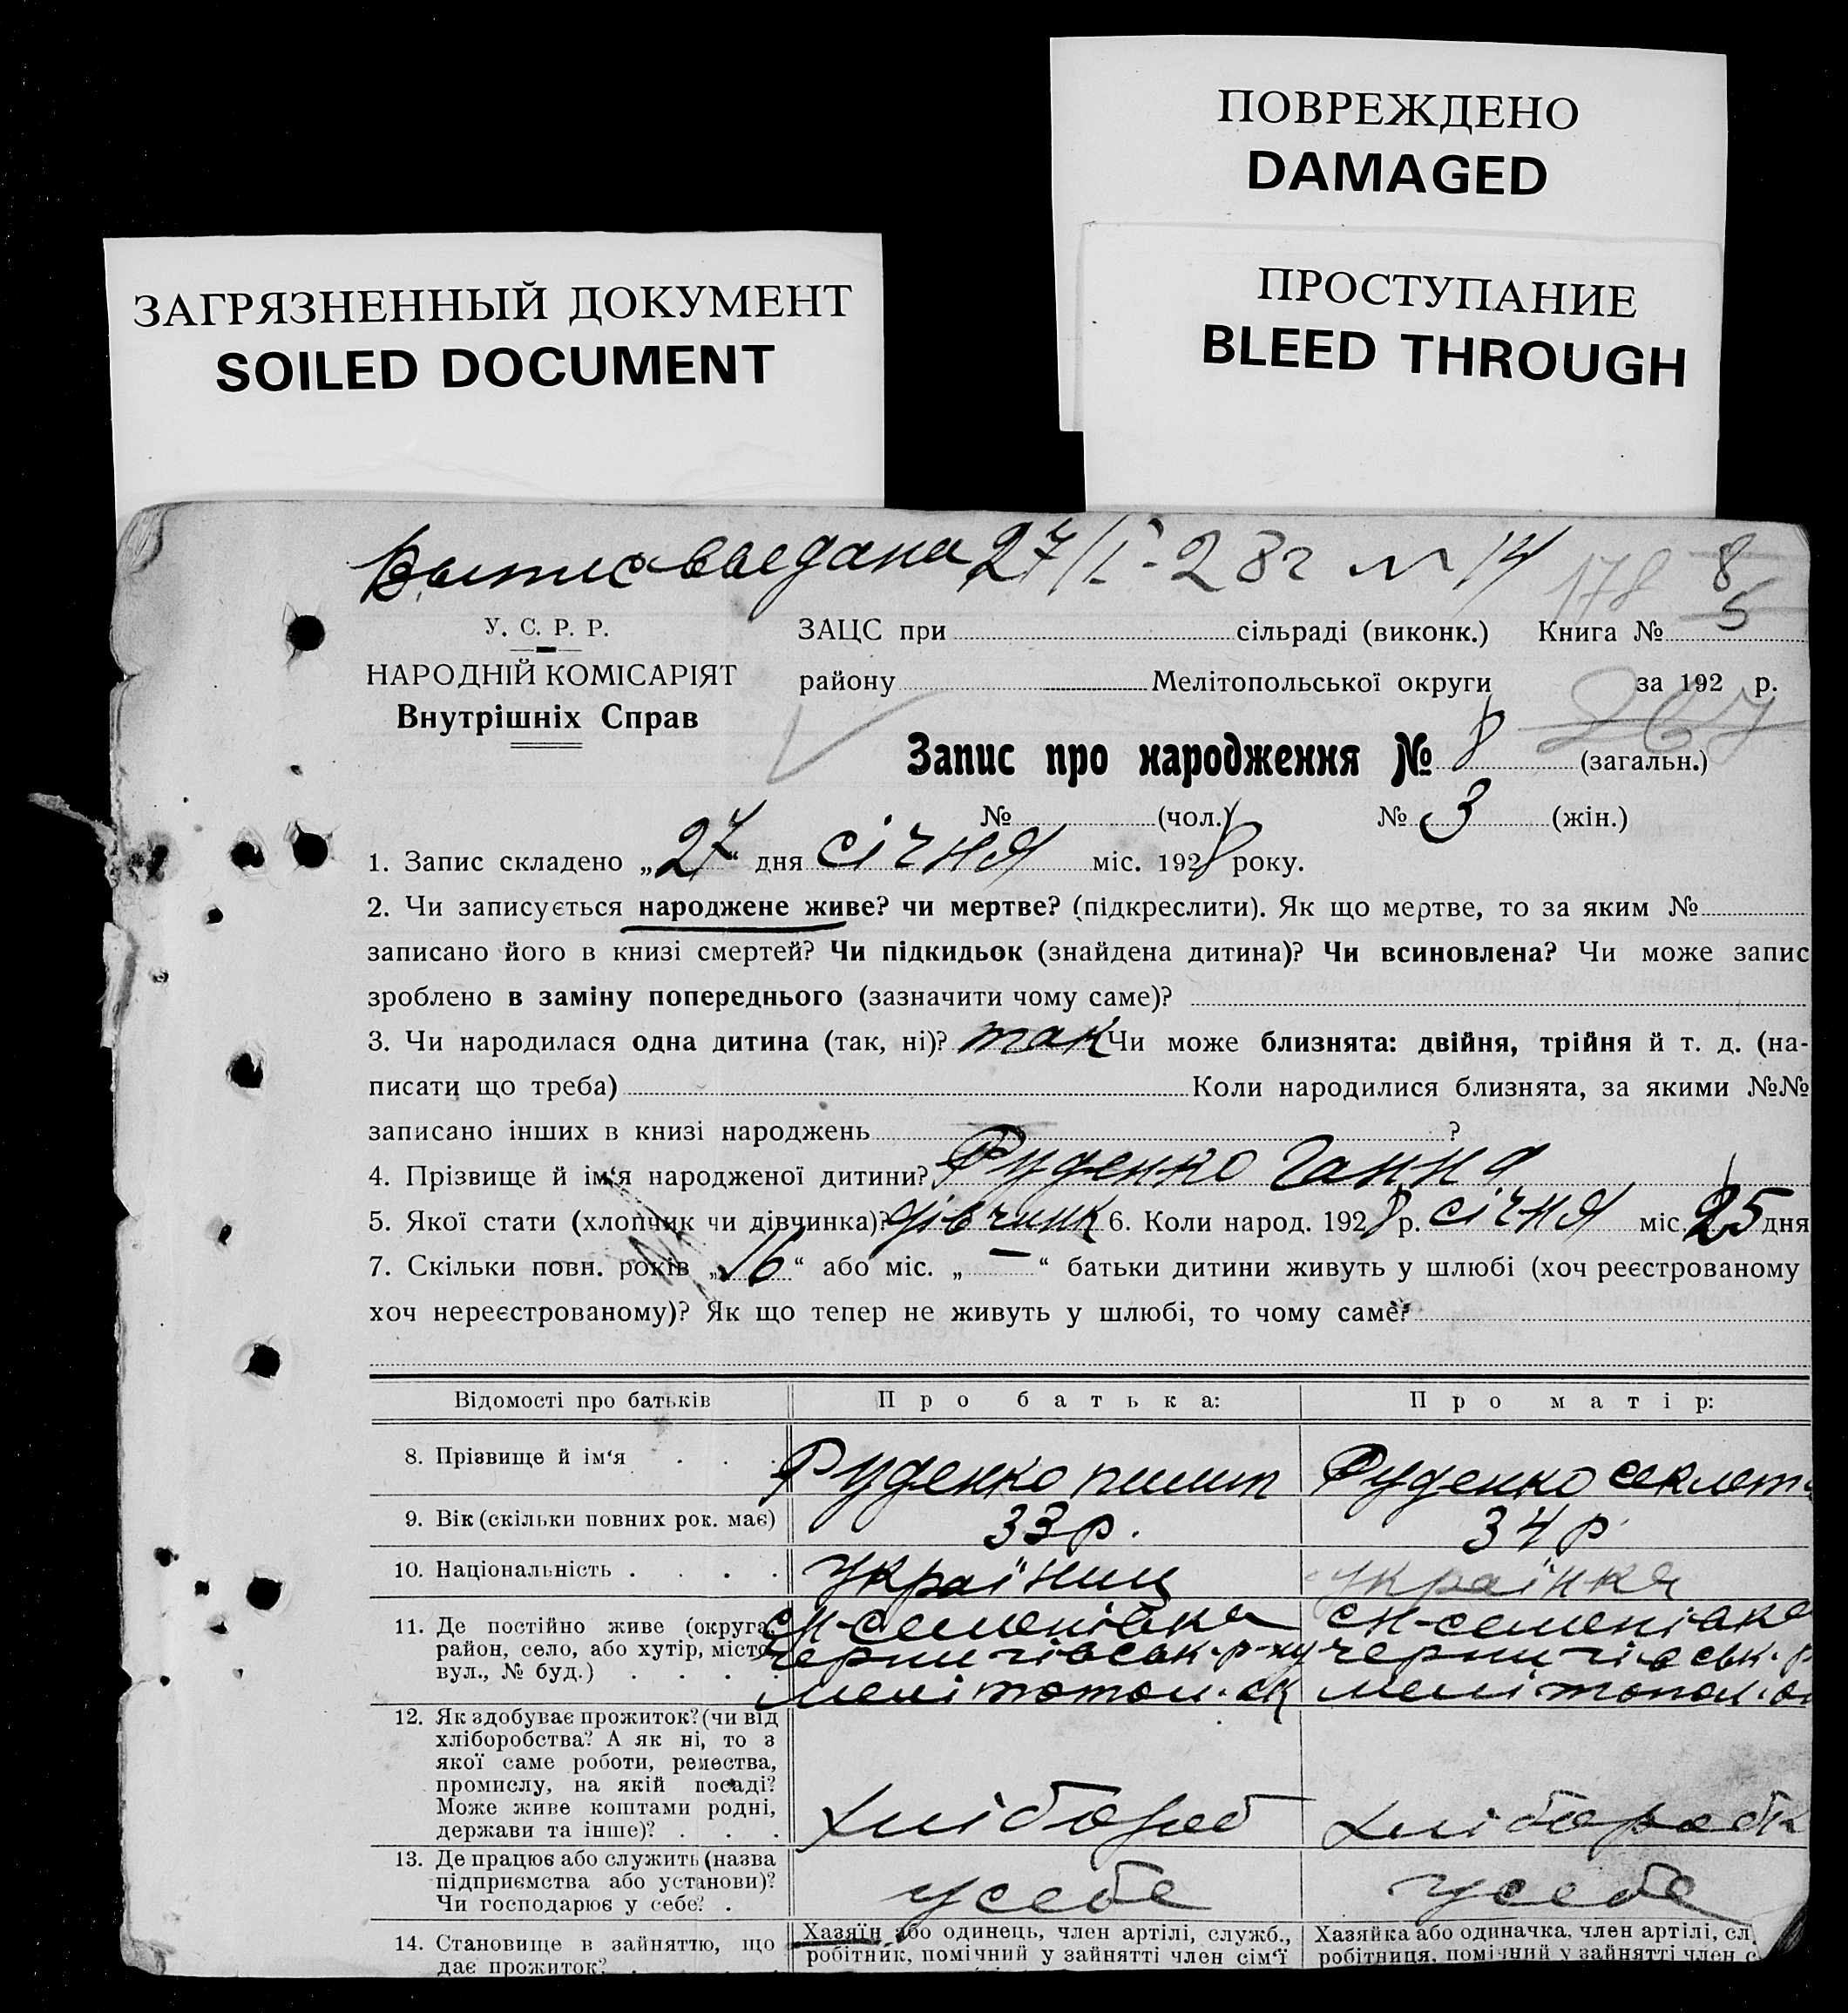 ПОВРЕЖДЕНО
DAMAGED
ПРОСТУПАНИЕ
BLEED THROUGH
ЗАГРЯЗНЕННЫЙ ДОКУМЕНТ
SOILED DOCUMENT
Выпис выдана 27/I-28г № 14
178 8
5
У. С. Р. Р.
НАРОДНІЙ КОМІСАРІЯТ
Внутрішніх Справ
ЗАЦС при сільраді (виконк.) Книга №
району Мелітопольської округи за 192 р.
267
Запис про народження № 8 (загальн.)
№ (чол.) № 3 (жін.)
1. Запис складено „27“ дня січня міс. 1928 року.
2. Чи записується народжене живе? чи мертве? (підкреслити). Як що мертве, то за яким №
записано його в книзі смертей? Чи підкидьок (знайдена дитина)? Чи всиновлена? Чи може запис
зроблено в заміну попереднього (зазначити чому саме)?
3. Чи народилася одна дитина (так, ні)? так Чи може близнята: двійня, трійня й т. д. (на-
писати що треба) Коли народилися близнята, за якими №№
записано інших в книзі народжень ?
4. Прізвище й ім‘я народженої дитини? Руденко Ганна
5. Якої стати (хлопчик чи дівчинка)? дівчинк 6. Коли народ. 1928 р. січня міс. 25 дня
7. Скільки повн. років „16“ або міс. „—“ батьки дитини живуть у шлюбі (хоч реєстрованому
хоч нереєстрованому)? Як що тепер не живуть у шлюбі, то чому саме?
Відомості про батьків Про батька: Про матір:
8. Прізвище й ім‘я . . . Руденко пилип Руденко секлет
9. Вік (скільки повних рок. має) 33 р. 34 р
10. Національність . . . . Українец українка
11. Де постійно живе (округа,
район, село, або хутір, місто,
вул., № буд.) . . . .
см-семенівка
чернигівськ. р-ну
мелітопол. ок
см-семенівка
чернигівськ. р
мелітопол. ок
12. Як здобуває прожиток? (чи від
хліборобства? А як ні, то з
якої саме роботи, ремества,
промислу, на якій посаді?
Може живе коштами родні,
держави та інше)? . . .
хлібороб хліборобк
13. Де працює або служить (назва
підприємства або установи)?
Чи господарює у себе? .
усебе усебе
14. Становище в зайняттю, що
дає прожиток? . . . .
Хазяїн або одинець, член артілі, служб.,
робітник, помічний у зайнятті член сім‘ї
Хазяйка або одиначка, член артілі, сл
робітниця, помічний у зайнятті член с